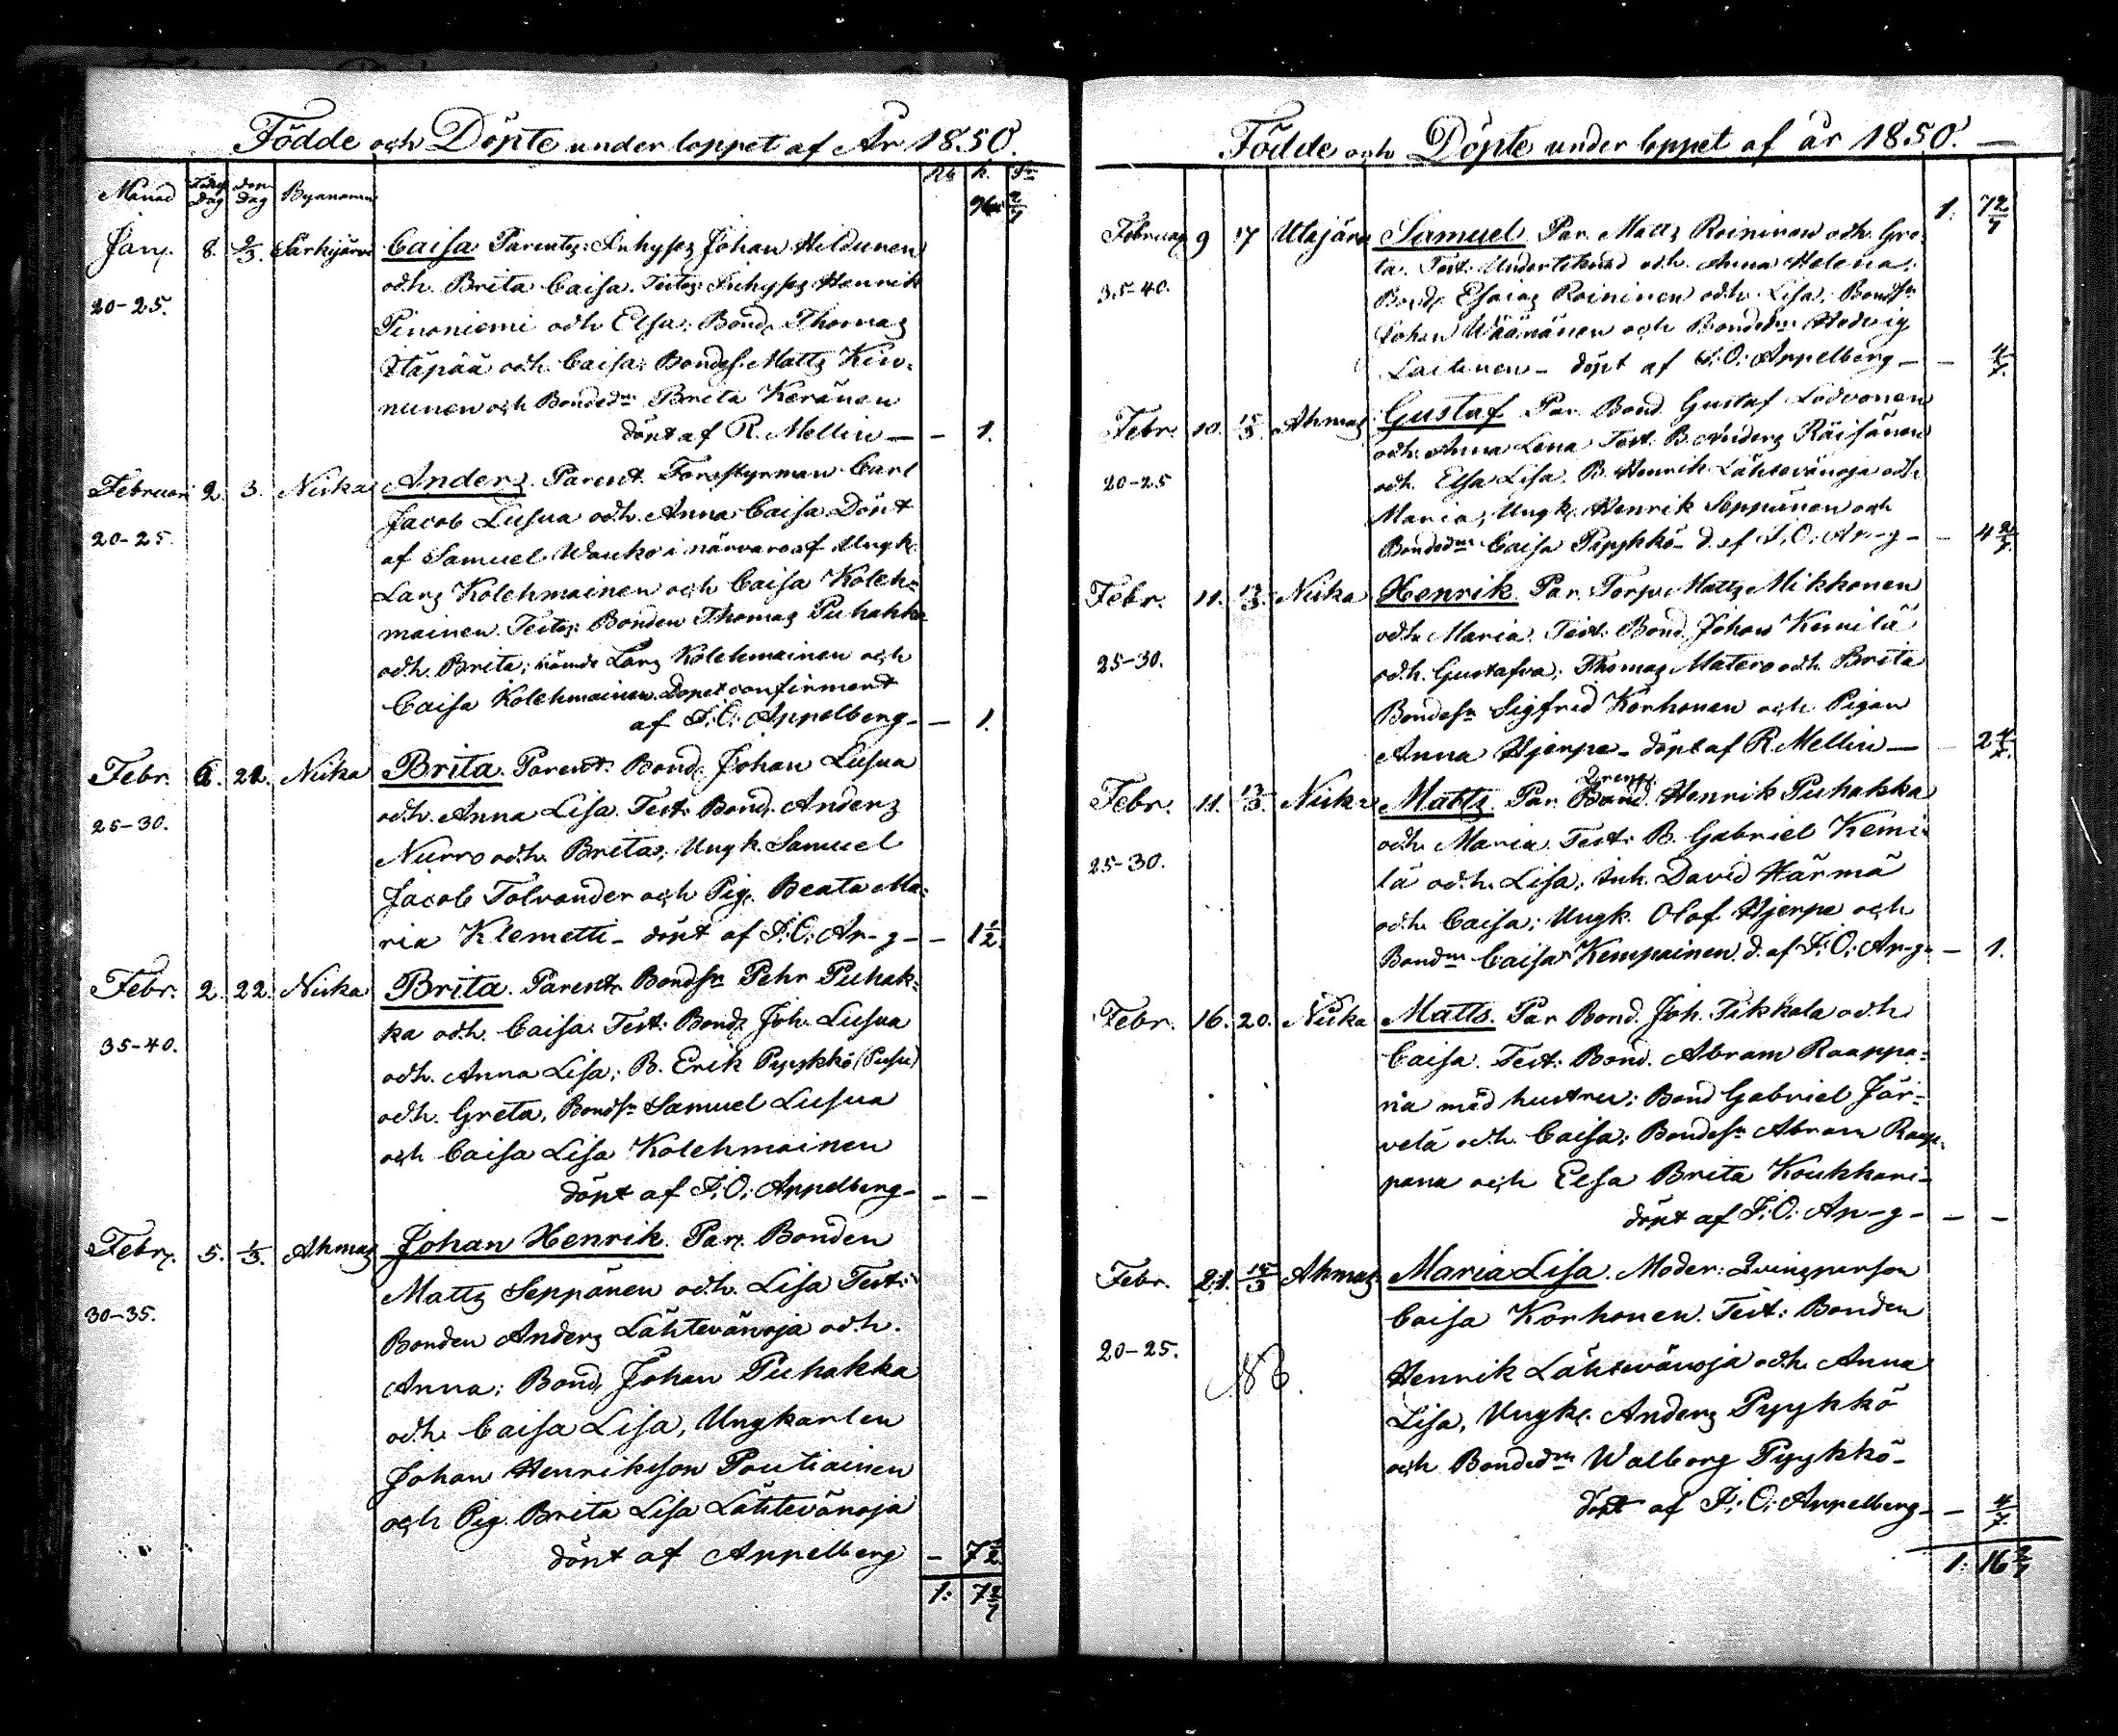 Födde och Döpte under loppet af År 1850.
Månad Födelse Dag Dop Dag Byanamn
Jany. 8. 2/3. Särkijärvi Caisa Parentes: Inhyses Johan Heldunen
och h. Brita Caisa. Testes: Inhyses Henrik
20-25.
Pinoniemi och h. Elsa; Bond. Thomas
Häpää och h. Caisa; Bondes. Matts Kin-
nunen och Bondedr Brita Keränen
döpt af R. Mellin — — 1.
Februari 2. 3. Niska Anders. Parent. Forsstyrman Carl
Jacob Lusua och h. Anna Caisa Döpt
20-25.
af Samuel Wauko i närvaro af Ungk.
Lars Kolehmainen och Caisa Koleh=
mainen. Testes: Bonden Thomas Puhakka
och h. Brita; nämde Lars Kolehmainen och
Caisa Kolehmainen. Dopet confirmerat
af F: O: Appelberg — — 1.
Febr. 6. 22. Niska Brita. Parent: Bond. Johan Lusua
och h. Anna Lisa. Test: Bond. Anders
25-30.
Nurro och h. Brita; Ungk. Samuel
Jacob Tolvander och Pig. Beata Ma-
ria Klemetti — döpt af F: O: Ap-g — — 1½
Febr. 2. 22. Niska Brita. Parent. Bondsn Pehr Puhak-
ka och h. Caisa. Test: Bond. Joh. Lusua
35-40.
och h. Anna Lisa; B. Erik Pyykkö (Pusu)
och h. Greta, Bondsn Samuel Lusua
och Caisa Lisa Kolehmainen
döpt af F: O: Appelberg — — —
Febry. 5. 1/3. Ahmas Johan Henrik. Par. Bonden
Matts Seppänen och h. Lisa Test:
30-35.
Bonden Anders Lähtevänoja och h.
Anna; Bond. Johan Puhakka
och h. Caisa Lisa, Ungkarlen
Johan Henriksson Poutiainen
och Pig. Brita Lisa Lähtevänoja
döpt af Appelberg —
1: 7 2/7
Födde och Döpte under loppet af år 1850. —
1. 7 2/7
Februar. 9 17 Utajärvi Samuel. Par. Matts Roininen och h. Gre-
ta. Test: Underteknad och h. Anna Helena;
35-40.
Bond. Esaias Roininen och h. Lisa; Bondsn
Johan Wäänänen och Bondedr Hedvig
Laitinen — döpt af F: O: Appelberg — — 4/7.
Febr. 10. 15/3 Ahmas Gustaf Par. Bond. Gustaf Lodvonen
och h. Anna Lena Test. B. Anders Räisänen
20-25
och h. Elsa Lisa. B. Henrik Lähtevänoja och h
Maria; Ungk. Henrik Seppänen och
Bondedr Caisa Pyykkö — d. af F: O: Ap-g — — 4 2/7.
Febr. 11. 13/3. Niska Henrik. Par. Torp. Matts Mikkonen
och h. Maria. Test: Bond. Johan Kemilä
25-30.
och h. Gustafva; Thomas Matero och h. Brita
Bondesn Sigfrid Korhonen och Pigan
Anna Hjerpe — döpt af R. Mellin — — 2 4/7.
Febr. 11. 13/3. Niska Matts Par. Bond. Dreng. Henrik Puhakka
och h. Maria. Test: B. Gabriel Kemi-
25-30.
lä och h. Lisa; Inh. David Härmä
och h. Caisa; Ungk. Olof Hjerpe och
Bonddr Caisa Kempainen d. af F: O: Ap-g — — 1.
Febr. 16. 20. Niska Matts. Par Bond. Joh. Tikkala och h.
Caisa. Test: Bond. Abram Raappa-
na med hustru; Bond Gabriel Jär-
velä och h. Caisa; Bondesn Abram Raap-
pana och Elsa Brita Koukkari —
döpt af F: O: Ap-g — — —
Febr. 21. 15/3 Ahmas Maria Lisa. Moder: Qvinsperson
Caisa Korhonen. Test: Bonden
20-25.
NB.
Henrik Lähtevänoja och h. Anna
Lisa, Ungk. Anders Pyykkö
och Bondedr Walborg Pyykkö —
döpt af F: O: Appelberg — — 4/7.
1. 16 2/7